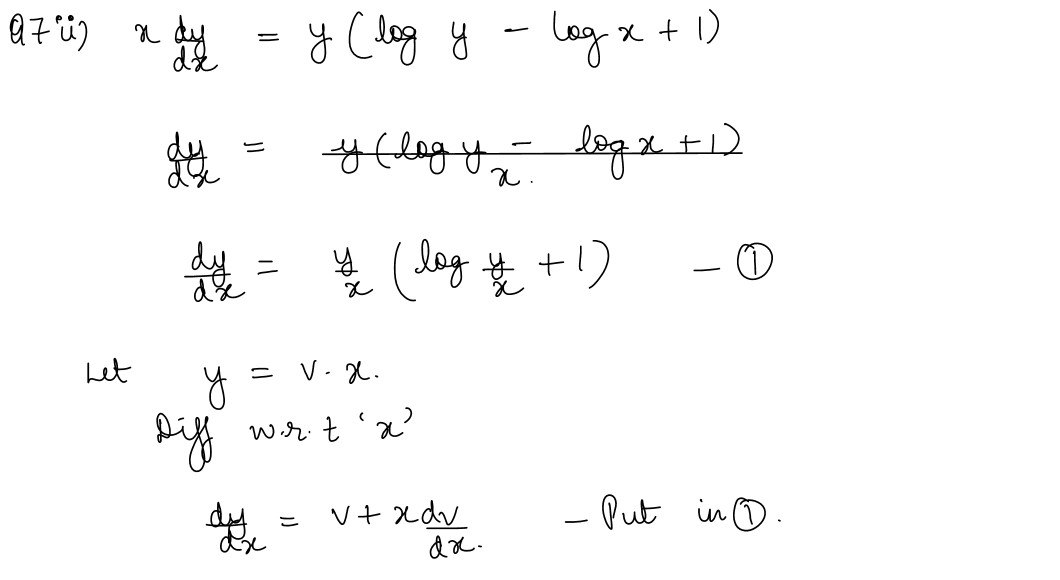 Q7 ii) x dy/dx = y (log y - log x + 1)
dy/dx = y (log y - log x + 1)/x.
dy/dx = y/x (log y/x + 1) - ①
Let y = v. x.
Diff w.r.t 'x'
dy/dx = v + x dv/dx. - Put in ①.